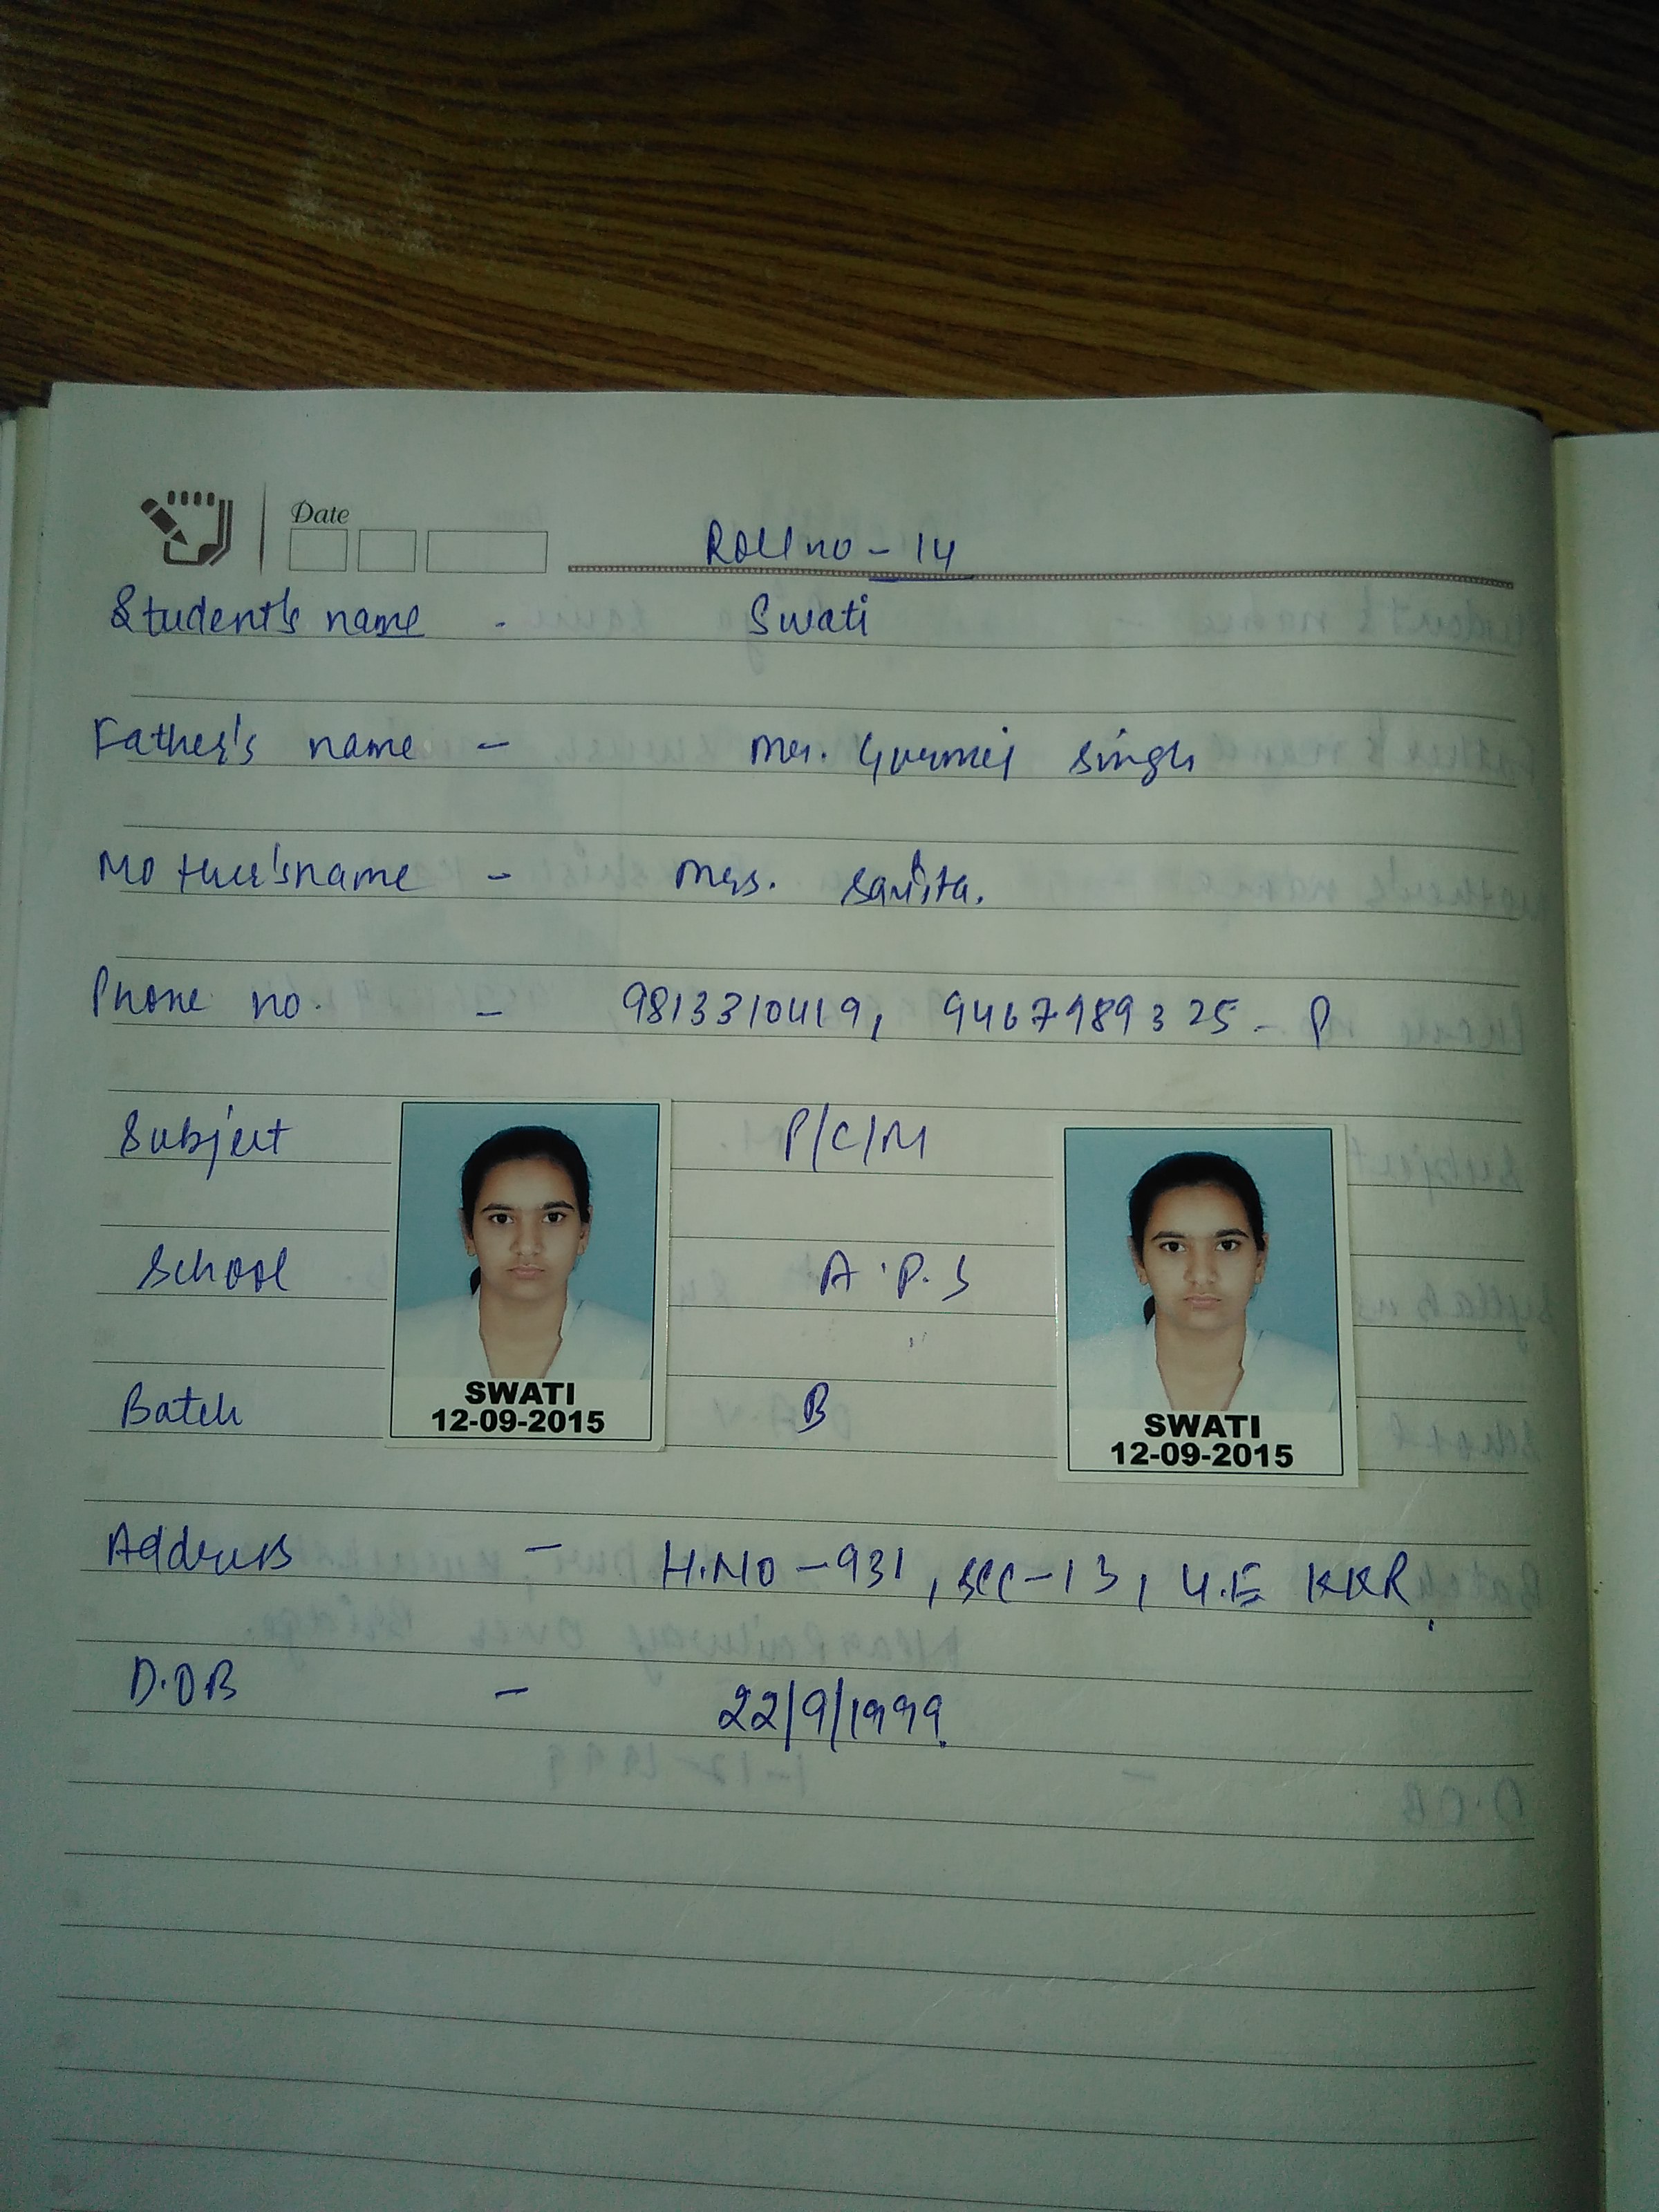 Date
Roll no - 14
Student's name - Swati
Father's name - Mr. Gurmej Singh
Mother's name - Mrs. Savita.
Phone no. - 9813310419, 9467989325 - P
Subject P/C/M
School A.P.S
Batch B
SWATI
12-09-2015
SWATI
12-09-2015
Address - H.NO - 931, Sec - 13, U.E KKR.
D.O.B - 22/9/1999.